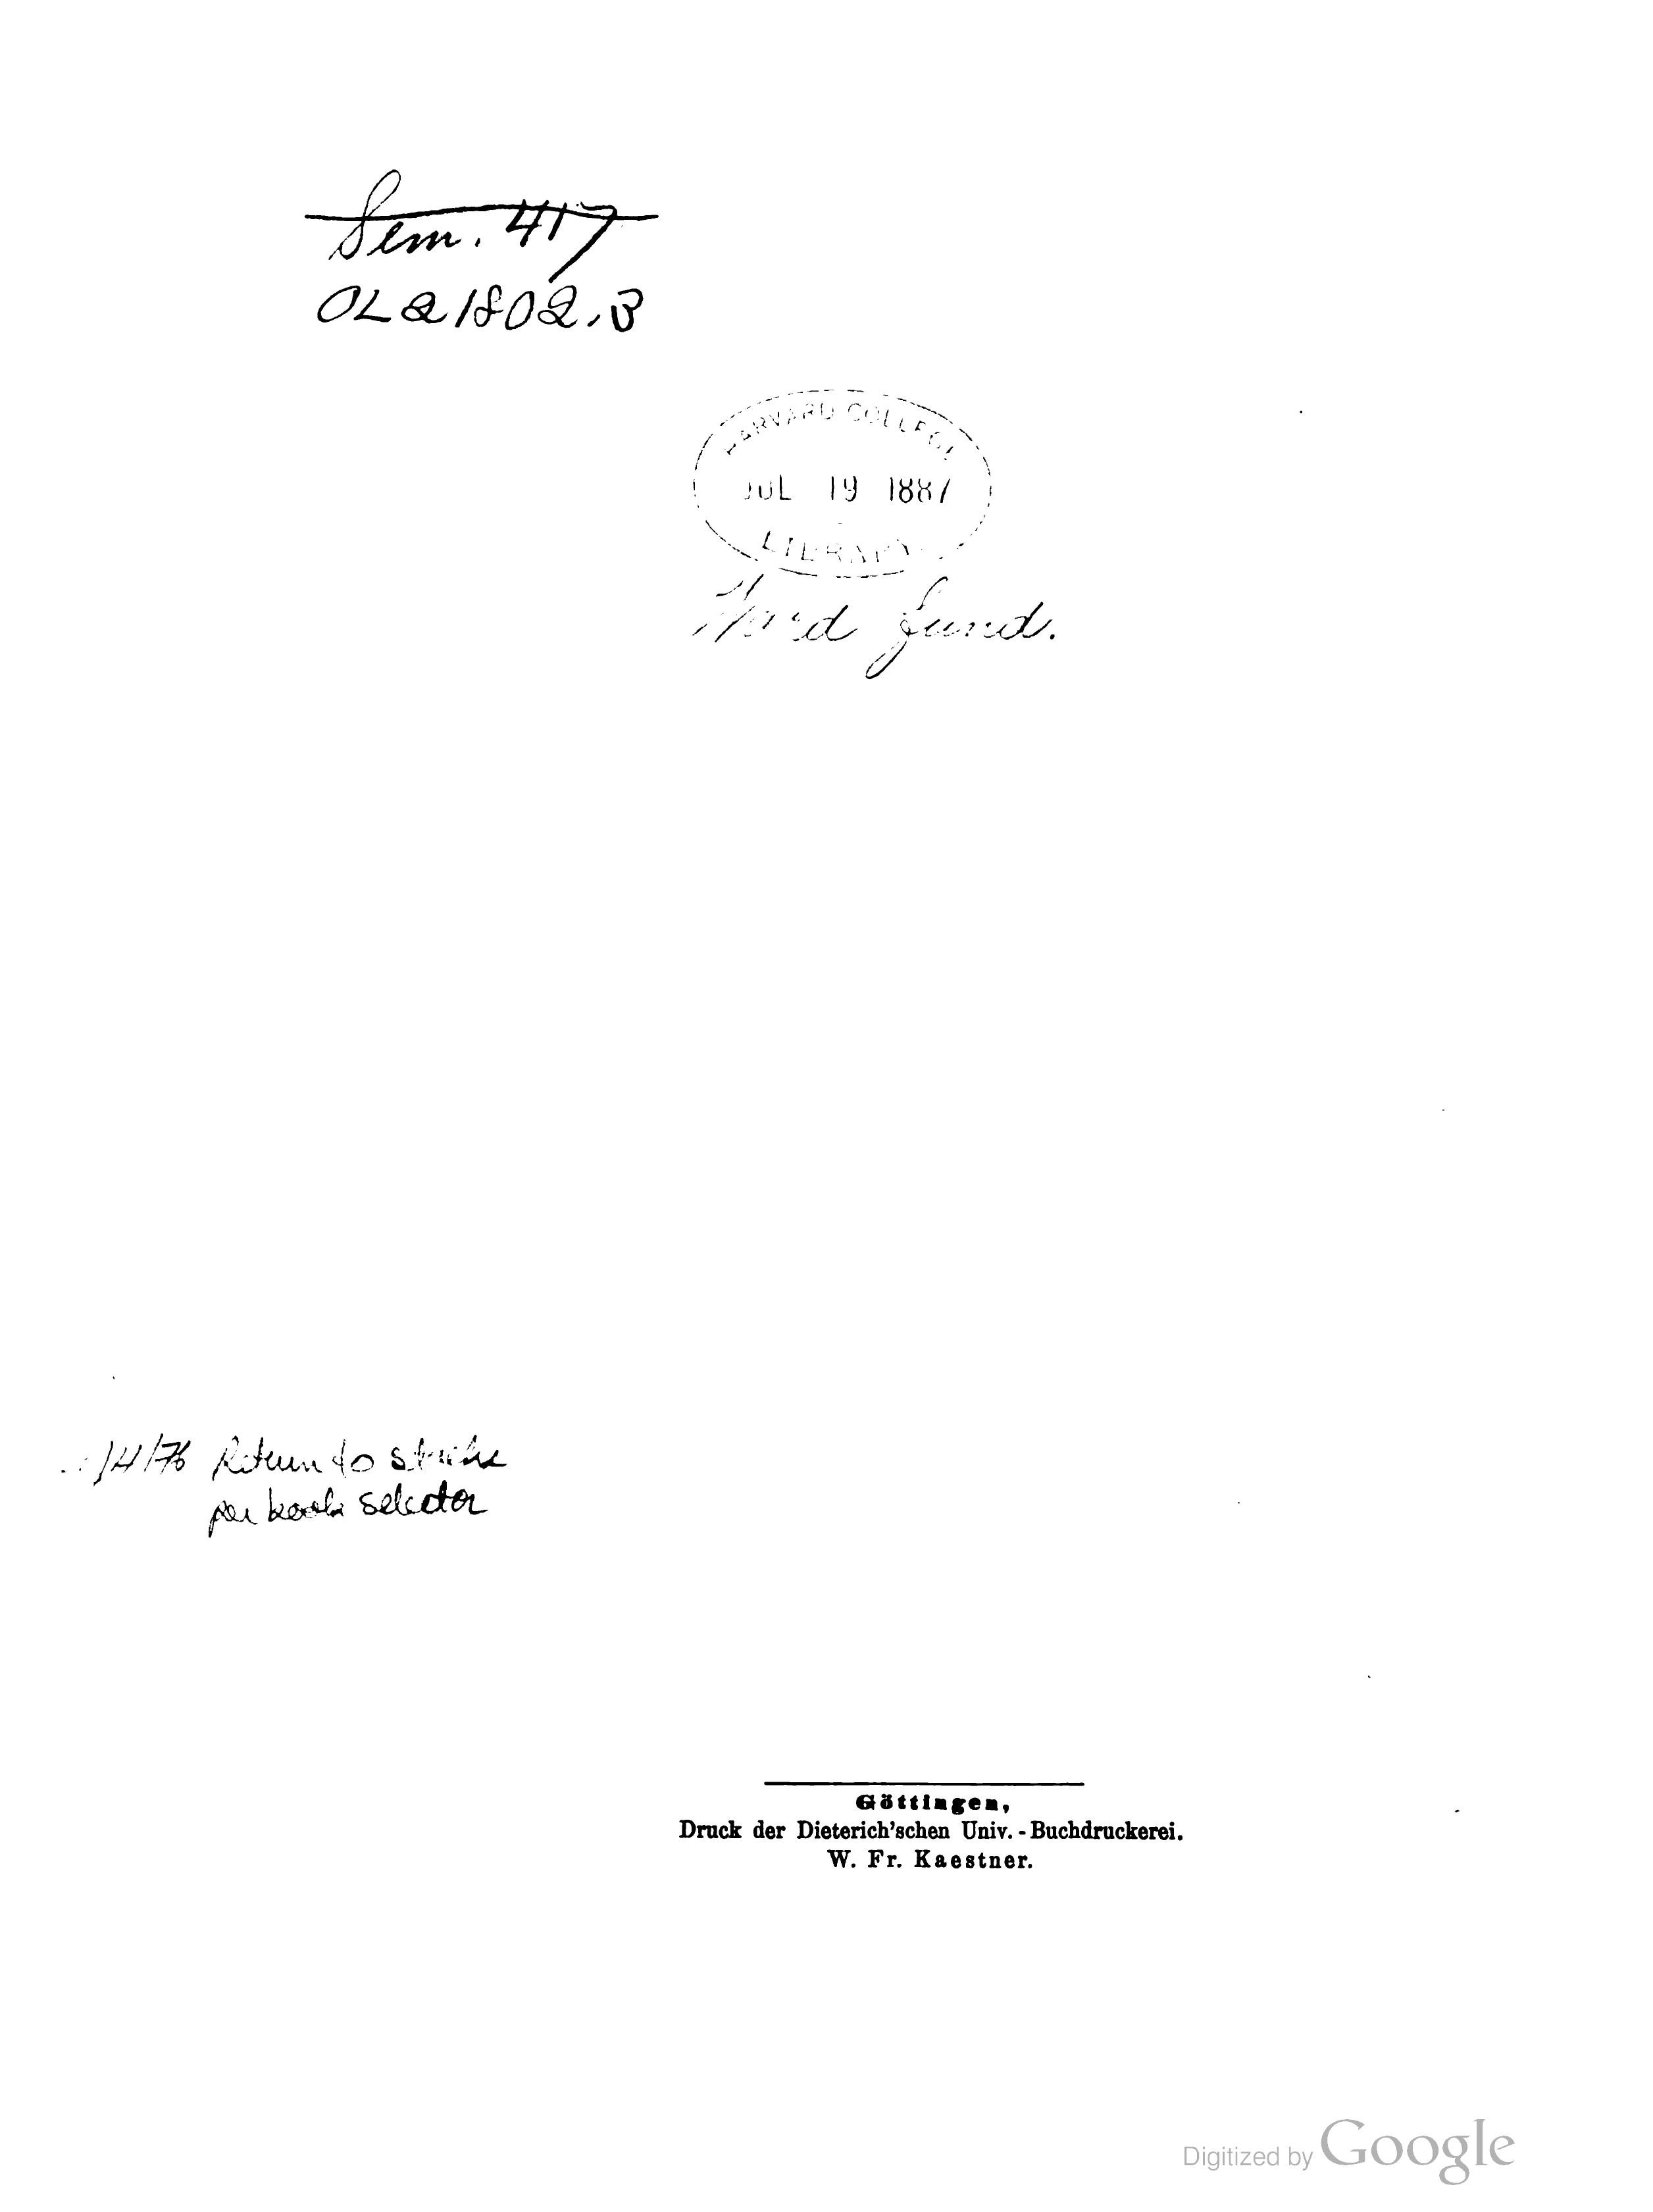 Sem. 417
OL 21802.3
HARVARD COLLEGE
JUL 19 1887
LIBRARY
fund.
/4/76 Return to stacks
per book selector
Göttingen,
Druck der Dieterich'schen Univ.-Buchdruckerei.
W. Fr. Kaestner.
Digitized by Google